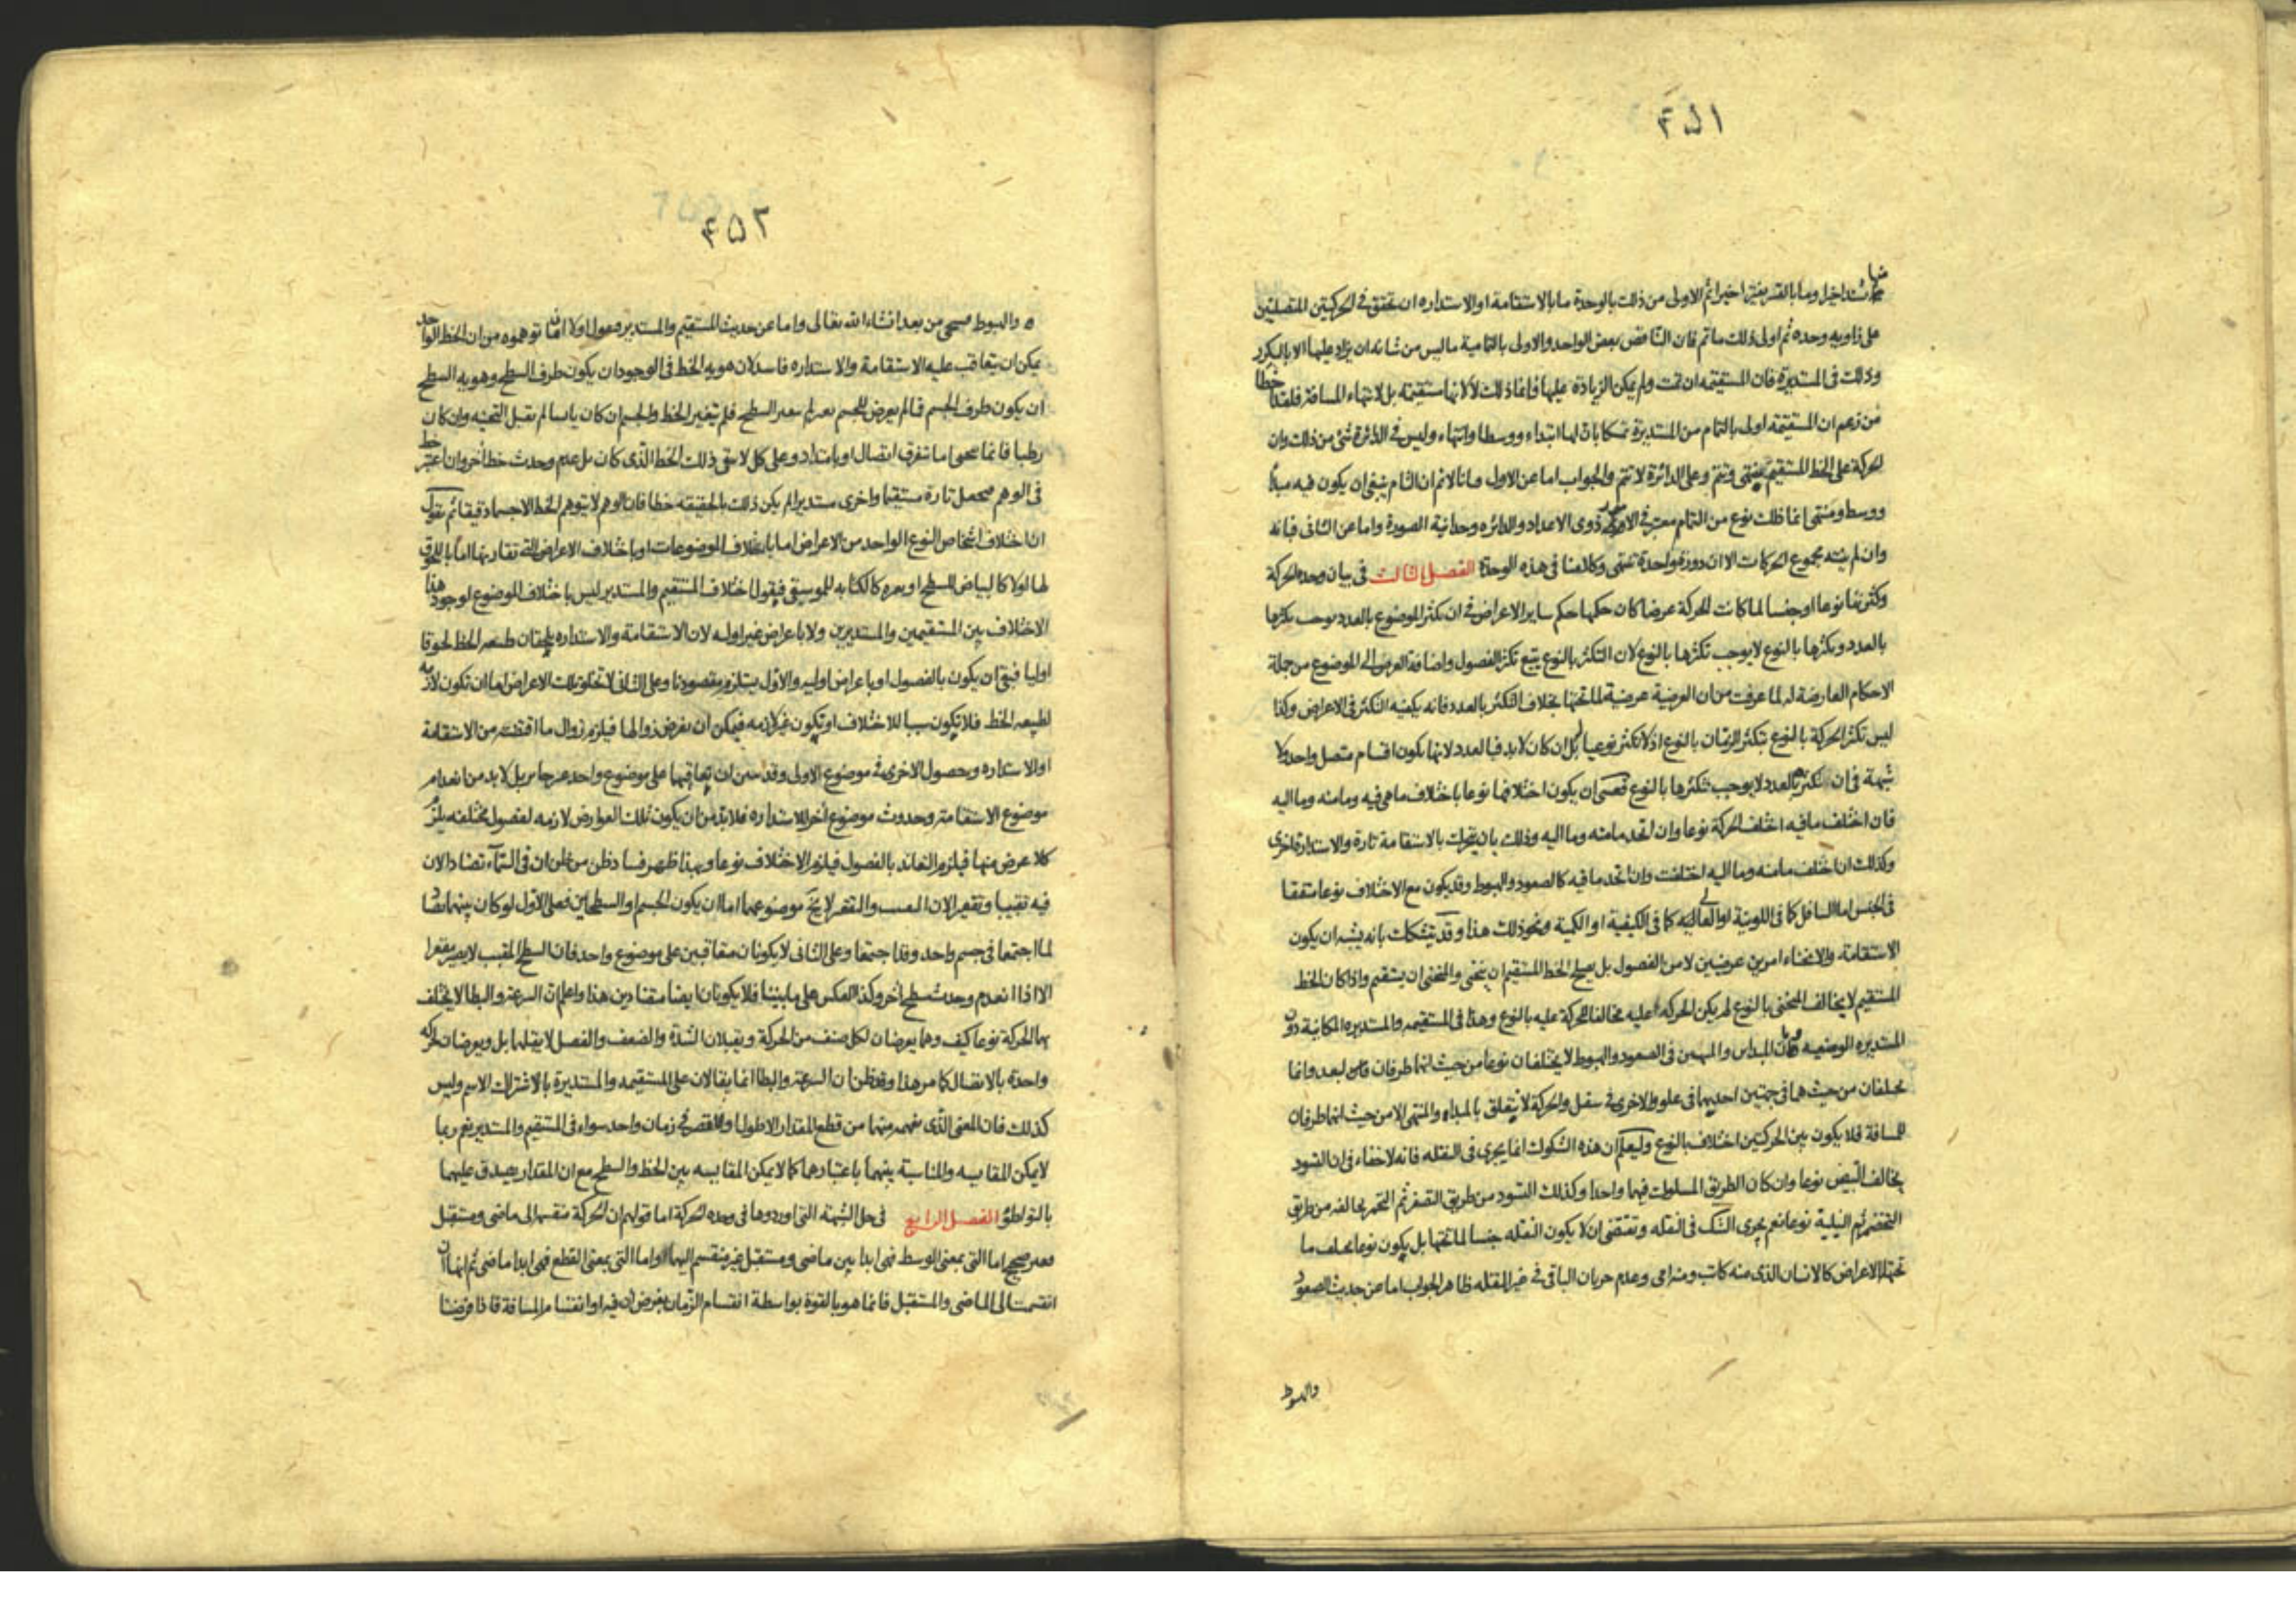 ۴۵۱
اخيرا ثم الاولى من ذلك بالوحدة ما بالاستقامة او الاستداره ان تحقق فى الحركتين المتصلتين
على زاويه وحده ثم اولى ذلك ما تم فان الناقص بعض الواحد والاولى بالتمامية ما ليس من شانه ان يزاد عليها الا بالتكرر
وذلك فى المستديرة فان المستقيمه ان تمت ولم يمكن الزيادة عليها فانما ذلك لا لانها مستقيمه بل لانتهاء المسافة فلقد خطا
من زعم ان المستقيمه اولى بالتمام من المستديرة متمسكا بان لها ابتداء ووسطا وانتهاء وليس فى الدائرة شئ من ذلك وان
الحركة على الخط المستقيم ينتهى وتتم وعلى الدائرة لا تتم والجواب اما عن الاول فانا لانم ان التام ينبغى ان يكون فيه مبدأ
ووسط ومنتهى انما ذلك نوع من التمام معتبر فى ذوى الاعداد والدائره وحدانية الصورة واما عن الثانى فبانه
وان لم ينته مجموع الحركات الا ان دورة واحدة تنتهى وكلامنا فى هذه الوحدة الفصل الثالث فى بيان وحده الحركة
وكثرتها نوعا او جنسا لما كانت الحركة عرضا كان حكمها حكم ساير الاعراض فى ان تكثر الموضوع بالعدد يوجب تكثرها
بالعدد وتكثرها بالنوع لا يوجب تكثرها بالنوع لان التكثر بالنوع يتبع تكثر الفصول واضافة العرض الى الموضوع من جملة
الاحكام العارضة له لما عرفت من ان العرضية عرضية لما تحتها بخلاف التكثر بالعدد فانه يكفيه التكثر فى الاعراض وكذا
ليس تكثر الحركة بالنوع بتكثر الزمان بالنوع اذ لا تكثر نوعيا له بل ان كان لابد فبالعدد لانها يكون اقسام متصل واحد ولا
شبهة فى ان التكثر بالعدد لا يوجب تكثرها بالنوع فعسى ان يكون اختلافها نوعا باختلاف ما هى فيه وما منه وما اليه
فان اختلف ما فيه اختلف الحركة نوعا وان اتحد ما منه وما اليه وذلك بان يتحرك بالاستقامة تارة والاستدارة اخرى
وكذلك ان اختلف ما منه وما اليه اختلفت وان اتحد ما فيه كالصعود والهبوط وقد يكون مع الاختلاف نوعا متفقا
فى الجنس اما السافل كما فى اللونية او العالى كما فى الكيفية او الكمية ونحو ذلك هذا وقد يتشكك بانه يشبه ان يكون
الاستقامة والانحناء امرين عرضيين لا من الفصول بل يصلح الخط المستقيم ان ينحنى والمنحنى ان يستقيم واذا كان الخط
المستقيم لا يخالف المنحنى بالنوع لم يكن الحركة عليه مخالفا للحركة عليه بالنوع وهذا فى المستقيمه والمستديره المكانية دون
المستديره الوضعيه وبان المبداين والمنتهيين فى الصعود والهبوط لا يختلفان نوعا من حيث انهما طرفان لبعد وانما
يختلفان من حيث هما فى جهتين احديهما فى علو والاخرى فى سفل والحركة لا يتعلق بالمبداء والمنتهى الا من حيث انهما طرفان
للمسافة فلا يكون بين الحركتين اختلاف بالنوع وليعلم ان هذه الشكوك انما يجرى فى النقله فانه لا خفاء فى ان التسود
يخالف التبيض نوعا وان كان الطريق المسلوك فيهما واحدا وكذلك التسود من طريق التصفر ثم التحمر يخالفه من طريق
التخضر ثم النيلية نوعا نعم يجرى الشك فى النقله وتقتضى ان لا يكون النقله جنسا لما تحتها بل يكون نوعا يختلف ما
تحتها بالاعراض كالانسان الذى منه كاتب ومنه امى وعدم جريان الباقى فى غير النقله ظاهر الجواب اما عن حديث الصعود
والهبوط
۴۵۲
والهبوط فسيجئ من بعد انشاء الله تعالى واما عن حديث المستقيم والمستدير فنقول اولا ان ما توهموه من ان الخط الواحد
يمكن ان يتعاقب عليه الاستقامة والاستداره فاسد لان هويه الخط فى الوجود ان يكون طرف السطح وهويه السطح
ان يكون طرف الجسم فما لم يعرض للجسم تغير لم يتغير السطح فلم يتغير الخط والجسم ان كان يابسا لم يقبل التحنيه وان كان
رطبا فانما ينحنى اما بتفرق اتصال او بامتداد وعلى كل لا يبقى ذلك الخط الذى كان بل عدم وحدث خط اخر وان اعتبر خط
فى الوهم يجعل تارة مستقيما واخرى مستديرا لم يكن ذلك بالحقيقه خطا فان الوهم لا يتوهم الخط الا جسما دقيقا ثم نقول
ان اختلاف اشخاص النوع الواحد من الاعراض اما باختلاف الموضوعات او باختلاف الاعراض التى تقارنها اما باللحوق
لها اولا كالبياض للسطح او بغيره كالكتابه للموسيقى فنقول اختلاف المستقيم والمستدير ليس باختلاف الموضوع لوجود هذا
الاختلاف بين المستقيمين والمستديرين ولا باعراض غير اوليه لان الاستقامة والاستداره يلحقان طبيعه الخط لحوقا
اوليا فبقى ان يكون بالفصول او باعراض اوليه والاول يستلزم مقصودنا وعلى الثانى لا تخلو تلك الاعراض اما ان تكون لازمه
لطبيعه الخط فلا يكون سببا للاختلاف او يكون غير لازمه فيمكن ان نفرض زوالها فيلزم زوال ما اقتضته من الاستقامة
او الاستداره وحصول الاخرى فى موضوع الاولى وقد تبين ان تعاقبهما على موضوع واحد غير جايز بل لابد من انعدام
موضوع الاستقامة وحدوث موضوع اخر للاستداره فلابد من ان يكون تلك العوارض لازمه لفصول مختلفه يلزم
كلا عرض منها فيلزم التعاند بالفصول فيلزم الاختلاف نوعا وبهذا ظهر فساد ظن من ظن ان فى السماء تضادا لان
فيه تقبيبا وتقعيرا لان المقبب والمقعر لا يخ موضوعهما اما ان يكون الجسم او السطحين فعلى الاول لو كان بينهما تضاد
لما اجتمعا فى جسم واحد وقد اجتمعا وعلى الثانى لا يكونان متعاقبين على موضوع واحد فان السطح المقبب لا يصير مقعرا
الا اذا انعدم وحدث سطح اخر وكذا العكس على ما بينا فلا يكونان ايضا متضادين هذا واعلم ان السرعة والبطا لا يختلف
بهما الحركة نوعا كيف وهما يعرضان لكل صنف من الحركة ويقبلان الشدة والضعف والفصل لا يقبلهما بل ويعرضان لحركه
واحدة بالاتصال كما مر هذا وقد ظن ان السرعة والبطا انما يقالان على المستقيمه والمستديرة بالاشتراك الاسم وليس
كذلك فان المعنى الذى نفهم منهما من قطع المقدار الاطول او الاقصر فى زمان واحد سواء فى المستقيم والمستدير نعم ربما
لا يمكن المقايسه والمناسبة بينهما باعتبارهما كما لا يمكن المقايسه بين الخط والسطح مع ان المقدار يصدق عليهما
بالتواطؤ الفصل الرابع فى حل الشبهة التى اوردوها فى وحده الحركة اما قولهم ان الحركة منقسمة الى ماضى ومستقبل
فغير صحيح اما التى بمعنى الوسط فهى ابدا بين ماضى ومستقبل غير منقسم اليهما واما التى بمعنى القطع فهى ابدا ماضى ثم انها ان
انقسمت الى الماضى والمستقبل فانما هو بالقوة بواسطة انقسام الزمان بفرض ان فيه او انقسام المسافة فاذا فرضنا